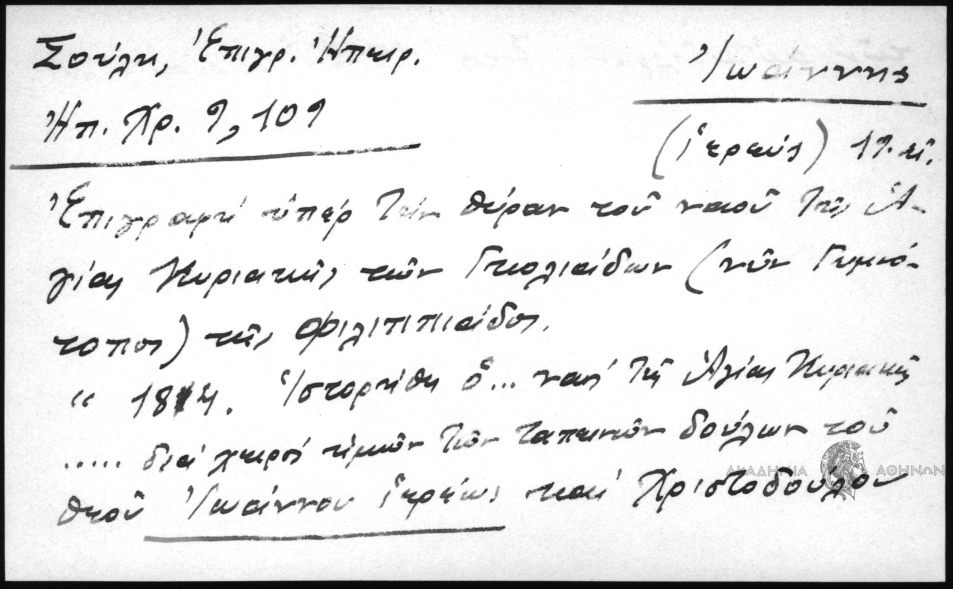 Σούλη, Ἐπιγρ. Ἠπειρ.
Ἰωάννης
Ἠπ. Χρ. 9, 109
(ἱερεύς) 19. αἰ.
Ἐπιγραφή ὑπέρ τήν θύραν τοῦ ναοῦ τῆς Ἁ-
γίας Κυριακῆς τῶν Γκολιαίδων (νῦν Γυμνό-
τοπος) τῆς Φιλιππιάδος.
“ 18 . Ἱστορήθη ὁ... ναός τῆς Ἁγίας Κυριακῆς
..... διά χειρός ἡμῶν τῶν ταπεινῶν δούλων τοῦ
Θεοῦ Ἰωάννου ἱερέως καί Χριστοδούλου
ΑΚΑΔΗΜΙΑ ΑΘΗΝΩΝ